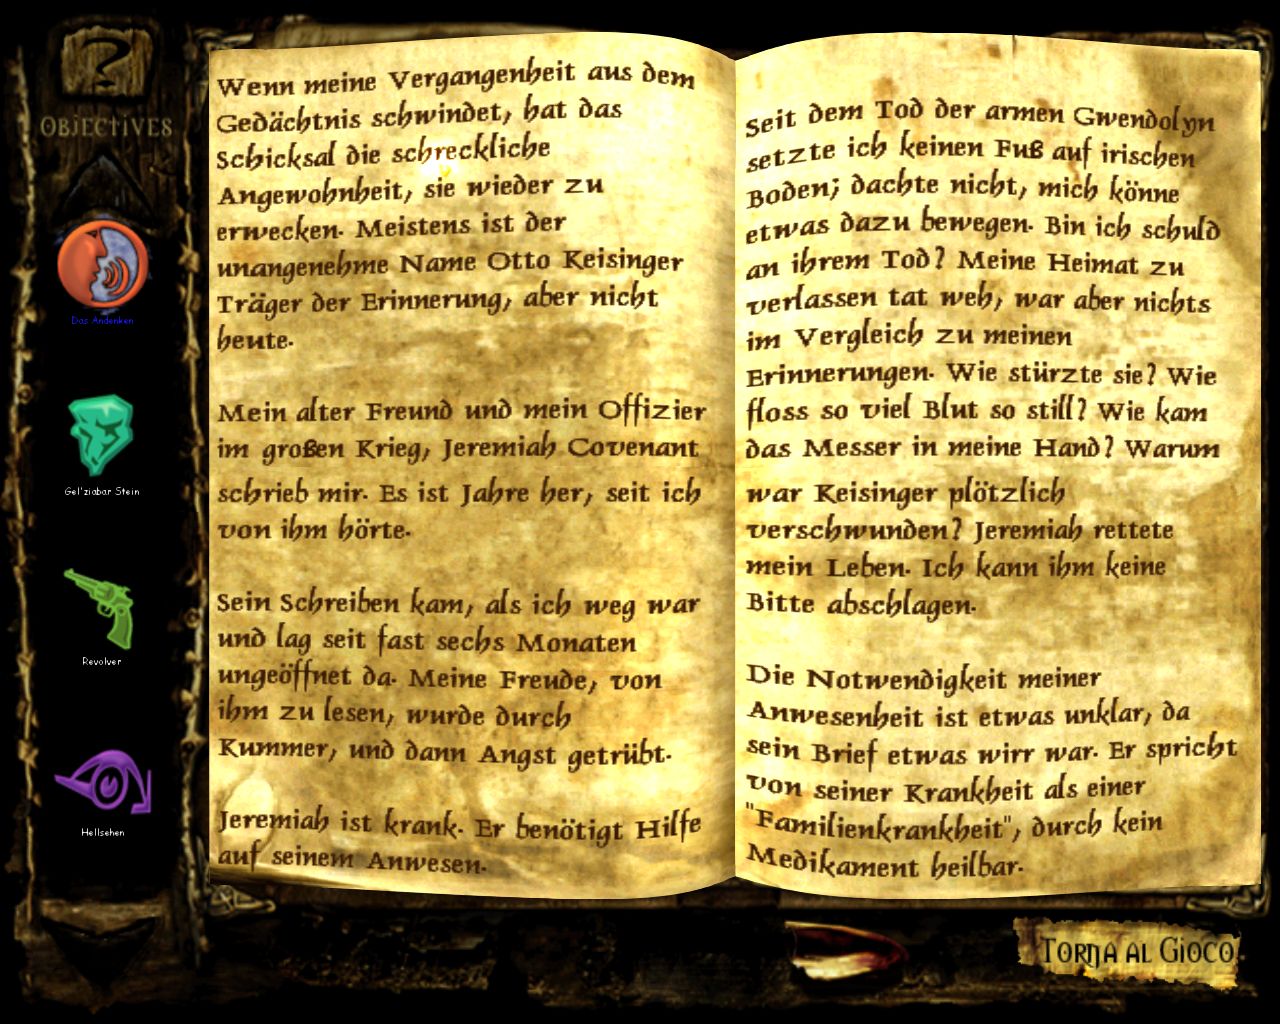 OBJECTIVES
Das Andenken
Gel'ziabar Stein
Revolver
Hellsehen
Wenn meine Vergangenheit aus dem
Gedächtnis schwindet, hat das
Schicksal die schreckliche
Angewohnheit, sie wieder zu
erwecken. Meistens ist der
unangenehme Name Otto Keisinger
Träger der Erinnerung, aber nicht
heute.
Mein alter Freund und mein Offizier
im großen Krieg, Jeremiah Covenant
schrieb mir. Es ist Jahre her, seit ich
von ihm hörte.
Sein Schreiben kam, als ich weg war
und lag seit fast sechs Monaten
ungeöffnet da. Meine Freude, von
ihm zu lesen, wurde durch
Kummer, und dann Angst getrübt.
Jeremiah ist krank. Er benötigt Hilfe
auf seinem Anwesen.
Seit dem Tod der armen Gwendolyn
setzte ich keinen Fuß auf irischen
Boden; dachte nicht, mich könne
etwas dazu bewegen. Bin ich schuld
an ihrem Tod? Meine Heimat zu
verlassen tat weh, war aber nichts
im Vergleich zu meinen
Erinnerungen. Wie stürzte sie? Wie
floss so viel Blut so still? Wie kam
das Messer in meine Hand? Warum
war Keisinger plötzlich
verschwunden? Jeremiah rettete
mein Leben. Ich kann ihm keine
Bitte abschlagen.
Die Notwendigkeit meiner
Anwesenheit ist etwas unklar, da
sein Brief etwas wirr war. Er spricht
von seiner Krankheit als einer
"Familienkrankheit", durch kein
Medikament heilbar.
Torna al Gioco